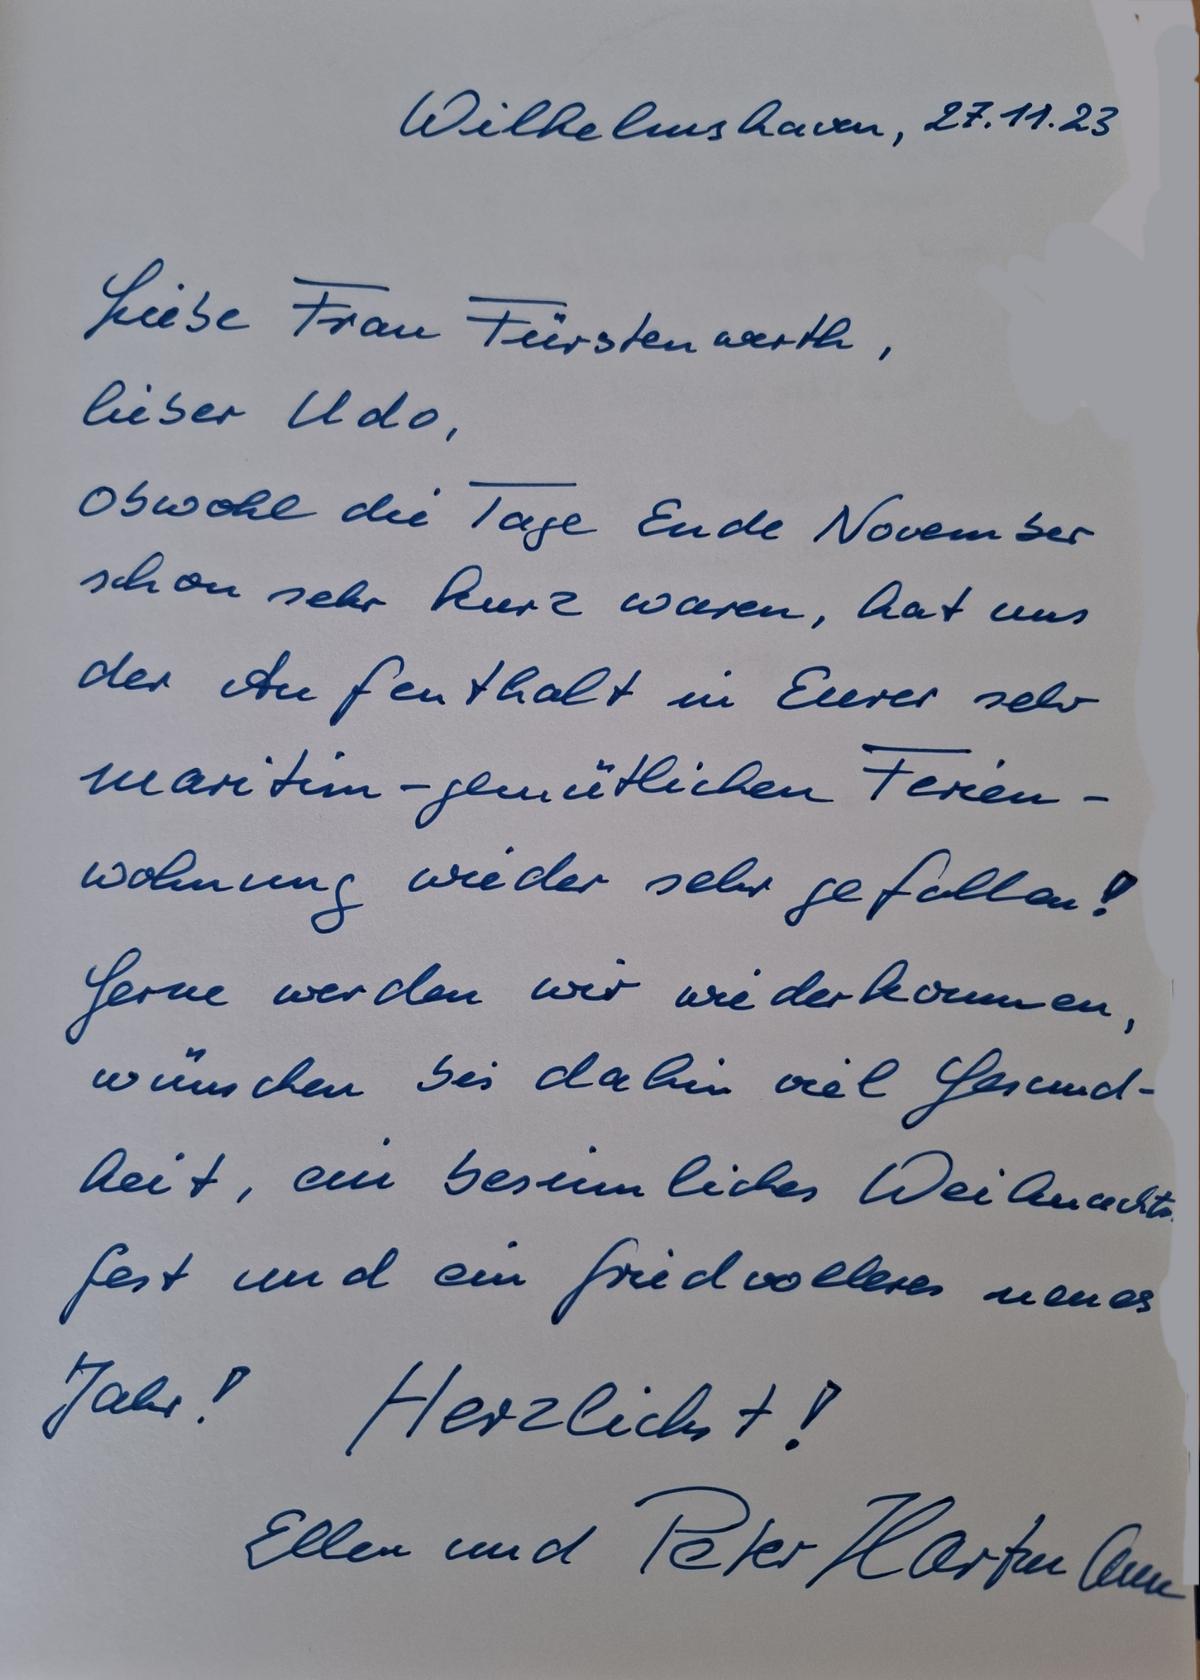 Wilhelmshaven, 27.11.23
Liebe Frau Fürstenwerth,
lieber Udo,
obwohl die Tage Ende November
schon sehr kurz waren, hat uns
der Aufenthalt in Eurer sehr
maritim-gemütlichen Ferien-
wohnung wieder sehr gefallen!
Gerne werden wir wiederkommen,
wünschen bis dahin viel Gesund-
heit, ein besinnliches Weihnachts-
fest und ein friedvolleres neues
Jahr! Herzlichst!
Ellen und Peter Hartmann